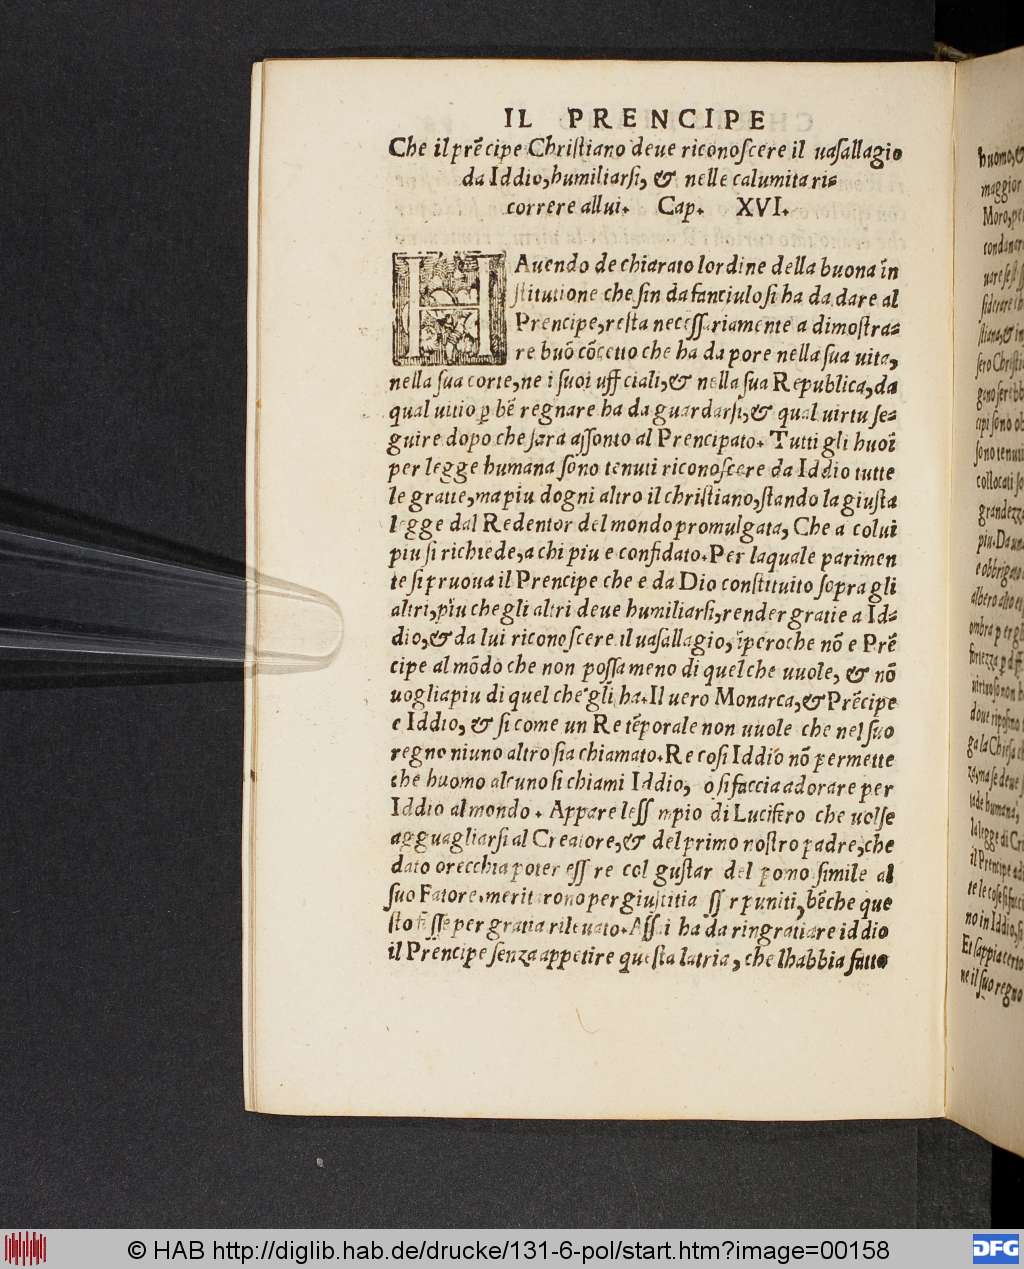 IL PRENCIPE
Che il prẽcipe Chriſtiano deue riconoſcere il uaſallagio
da Iddio, humiliarſi, & nelle calumita ri-
correre allui. Cap. XVI.
HAuendo dechiarato lordine della buona ĩn
ſtitutione che ſin da fanciulo ſi ha da dare al
Prencipe, reſta neceſſariamente a dimoſtra-
re buõ cõcetto che ha da pore nella ſua uita,
nella ſua corte, ne i ſuoi ufficiali, & nella ſua Republica, da
qual uitio p bẽ regnare ha da guardarſi, & qual uirtu ſe-
guire dopo che ſara aſſonto al Prencipato. Tutti gli huoĩ
per legge humana ſono tenuti riconoſcere da Iddio tutte
le gratie, ma piu dogni altro il chriſtiano, ſtando la giuſta
legge dal Redentor del mondo promulgata, Che a colui
piu ſi richiede, a chi piu e confidato. Per laquale parimen
te ſi pruoua il Prencipe che e da Dio conſtituito ſopra gli
altri, piu che gli altri deue humiliarſi, render gratie a Id-
dio, & da lui riconoſcere il uaſallagio, ĩperoche nõ e Prẽ
cipe al mõdo che non poſſa meno di quel che uuole, & nõ
uoglia piu di quel che gli ha. Il uero Monarca, & Prẽcipe
e Iddio, & ſi come un Re tẽporale non uuole che nel ſuo
regno niuno altro ſia chiamato. Re coſi Iddio nõ permette
che huomo alcuno ſi chiami Iddio, o ſi faccia adorare per
Iddio al mondo. Appare leſſ mpio di Lucifero che uolſe
agguagliarſi al Creatore, & del primo noſtro padre, che
dato orecchia poter eſſ re col guſtar del pomo ſimile al
ſuo Fatore. meritarono per giuſtitia puniti, bẽche que
ſto per gratia rileuato. Aſſai ha da ringratiare iddio
il Prencipe ſenza appetire queſta latria, che lhabbia fatto
huomo, &
maggior
Moro, pe
condanar
ſtiana, & in
ſero Chriſti
cipi ſono ob
ſono tenuti
collocati ſo
grandezza
piu. Da un
e obbrigato
albero alto e
ombra per gli
fortezza p
uirtuoſo non h
doue ripoſino
ga la Chieſa
la legge di Cri
il Prencipe ad
te le coſe ſi facci
no in Iddio, ſi
Et ſappia certo
ne il ſuo regno
© HAB http://diglib.hab.de/drucke/131-6-pol/start.htm?image=00158
DFG